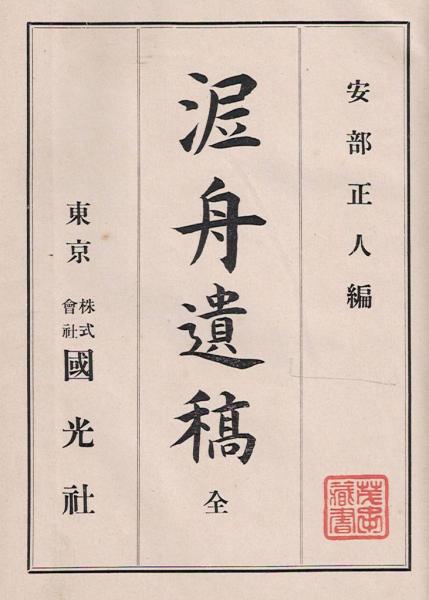 安部正人編
泥舟遺稿 全
東京 株式會社 國光社
藏書